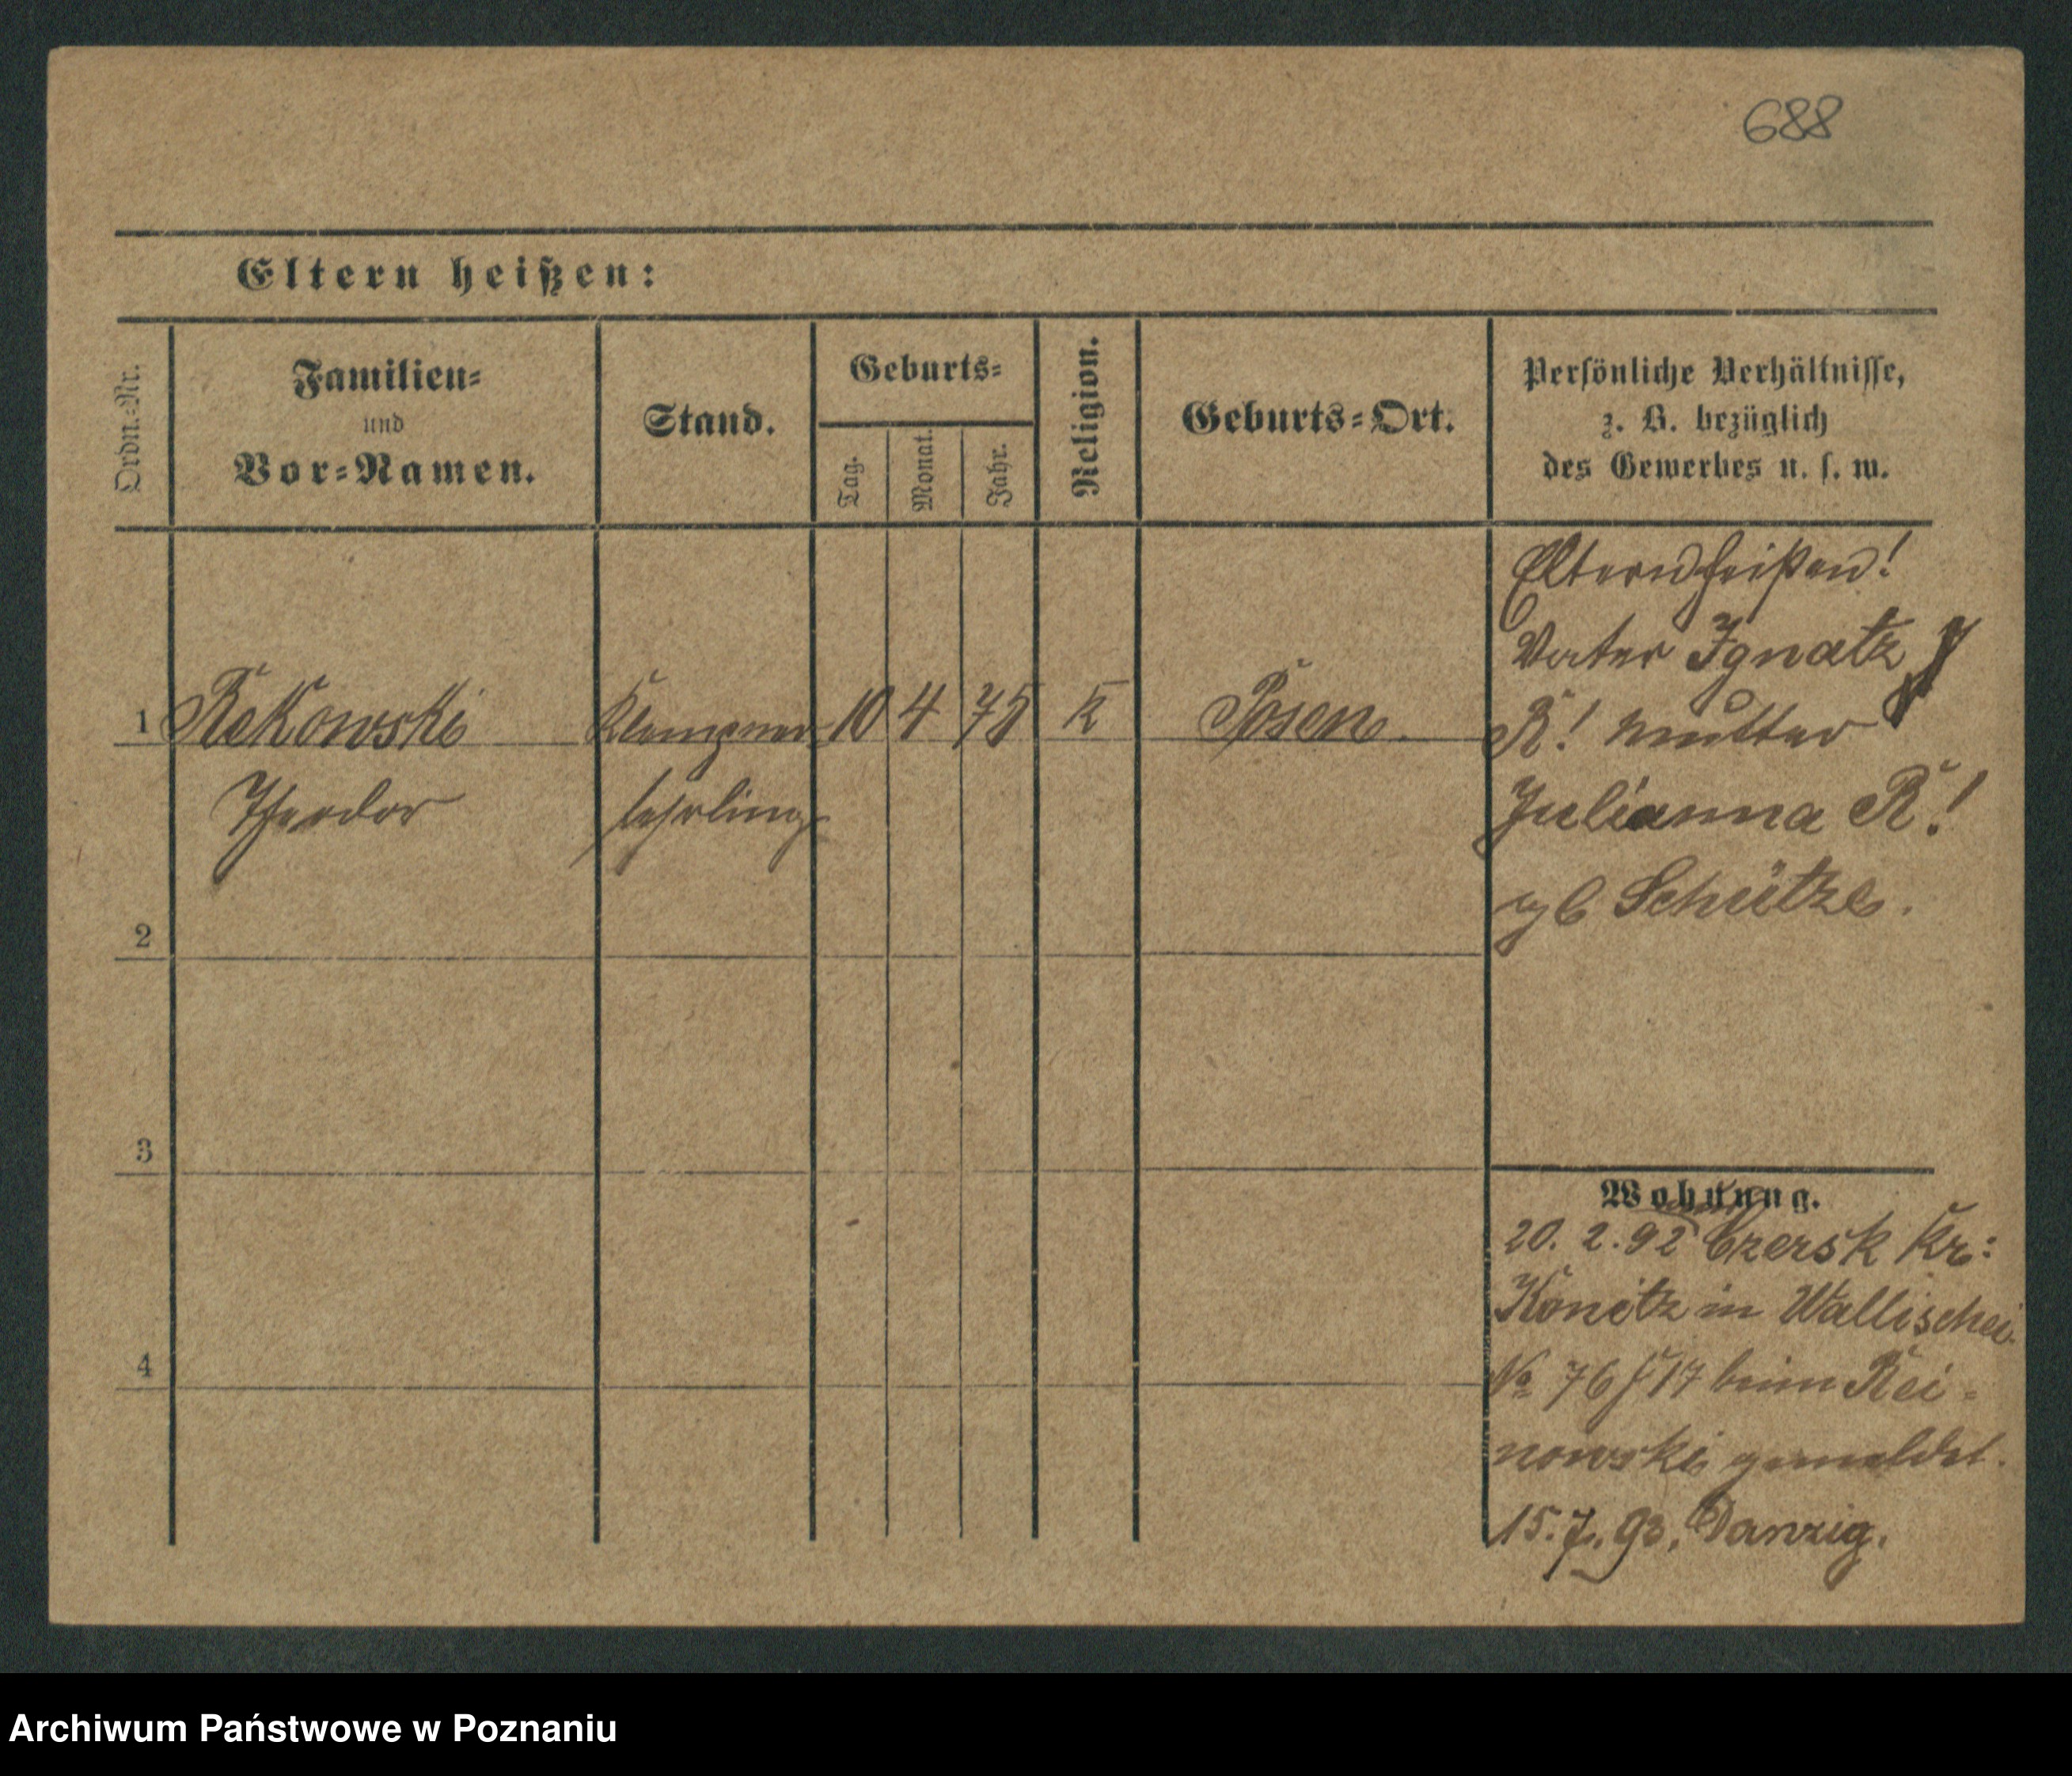 688
Eltern heißen:
Ordn.-Nr.
Familien-
und
Vor-Namen.
Stand.
Geburts-
Tag.
Monat.
Jahr.
Religion.
Geburts-Ort.
Persönliche Verhältnisse,
z. B. bezüglich
des Gewerbes u. s. w.
1 Rekowski Klempner 10 4 75 K Posen.
Theodor lehrling
2
3
4
Eltern heißen!
Vater Ignatz
R! Mutter
Julianna R!
gb Schütze.
Wohnung.
20. 2. 92 Czersk Kr:
Konitz in Wallischei
No 76/17 beim Rei-
nowski gemeldet.
15. 7. 93. Danzig.
Archiwum Państwowe w Poznaniu